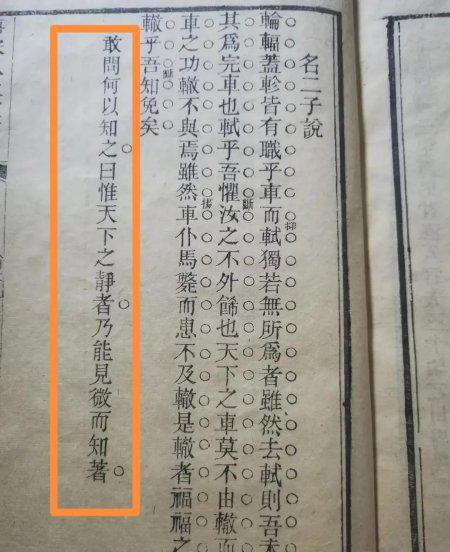 名二子說
輪輻蓋軫皆有職乎車而軾獨若無所爲者雖然去軾則吾未
抑
其爲完車也軾乎吾懼汝之不外餙也天下之車莫不由轍而
斷
車之功轍不與焉雖然車仆馬斃而患不及轍是轍者禍福之
轍乎吾知免矣
斷
敢問何以知之曰惟天下之靜者乃能見微而知著